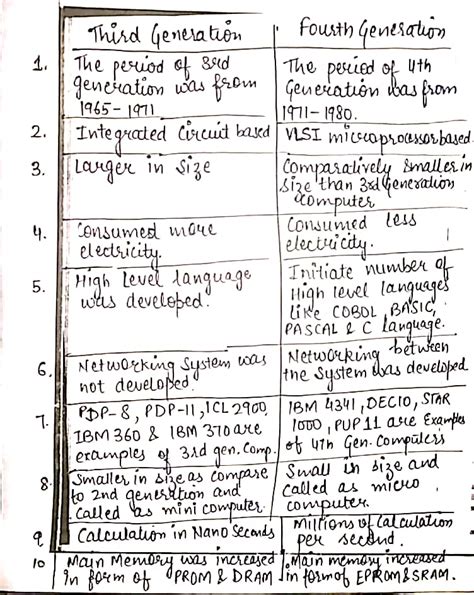 Third Generation
Fourth Generation
1. The period of 3rd
generation was from
1965-1971
The period of 4th
Generation was from
1971-1980.
2. Integrated Circuit based
VLSI microprocessor based.
3. Larger in Size
Comparatively smaller in
size than 3rd generation
computer
4. Consumed more
electricity.
Consumed less
electricity.
5. High level language
was developed.
Initiate number of
High level languages
like COBOL, BASIC,
PASCAL & C language.
6. Networking System was
not developed.
Networking between
the System was developed
7. PDP-8, PDP-11, ICL 2900,
IBM 360 & IBM 370 are
examples of 3rd gen. Comp.
IBM 4341, DEC10, STAR
1000, PUP 11 are Examples
of 4th Gen. Computers
8. Smaller in size as compare
to 2nd generation and
called as mini computer.
Small in size and
called as micro
computer.
9 Calculation in Nano Seconds
Millions of Calculation
per second.
10 Main Memory was increased
in form of PROM & DRAM
Main memory increased
in form of EPROM & SRAM.